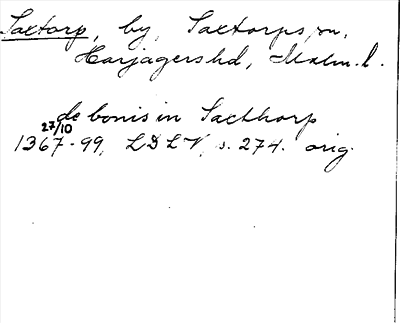 Saxtorp, by, Saxtorps sn,
Harjagers hd, Malm. l.
de bonis in Saxthorp
27/10
1367-99, LDLV, s. 274. orig.